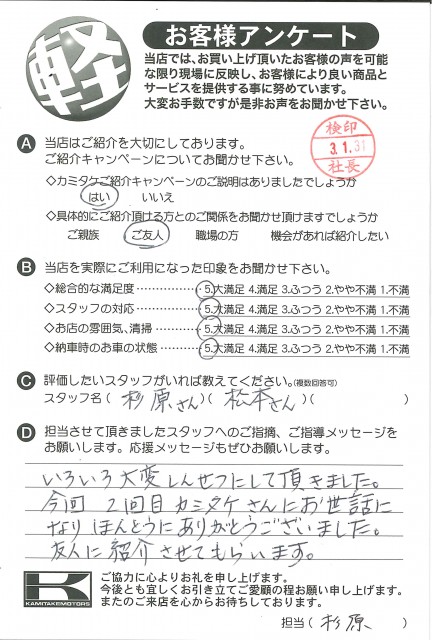 軽
お客様アンケート
当店では、お買い上げ頂いたお客様の声を可能
な限り現場に反映し、お客様により良い商品と
サービスを提供する事に努めています。
大変お手数ですが是非お声をお聞かせ下さい。
検印
3.1.31
社長
A 当店はご紹介を大切にしております。
ご紹介キャンペーンについてお聞かせ下さい。
◇カミタケご紹介キャンペーンのご説明はありましたでしょうか
はい いいえ
◇具体的にご紹介頂ける方とのご関係をお聞かせ頂けますでしょうか
ご親族 ご友人 職場の方 機会があれば紹介したい
B 当店を実際にご利用になった印象をお聞かせ下さい。
◇総合的な満足度 5.大満足 4.満足 3.ふつう 2.やや不満 1.不満
◇スタッフの対応 5.大満足 4.満足 3.ふつう 2.やや不満 1.不満
◇お店の雰囲気、清掃 5.大満足 4.満足 3.ふつう 2.やや不満 1.不満
◇納車時のお車の状態 5.大満足 4.満足 3.ふつう 2.やや不満 1.不満
C 評価したいスタッフがいれば教えてください。(複数回答可)
スタッフ名(杉原さん)(松本さん)( )
D 担当させて頂きましたスタッフへのご指摘、ご指導メッセージを
お願いします。応援メッセージもぜひお願いします。
いろいろ大変しんせつにして頂きました。
今回 2回目カミタケさんにお世話に
なりほんとうにありがとうございました。
友人に紹介させてもらいます。
K
KAMITAKEMOTORS
ご協力に心よりお礼を申し上げます。
今後とも宜しくお引き立てご愛顧の程お願い申し上げます。
またのご来店を心からお待ちしております。
担当(杉原)